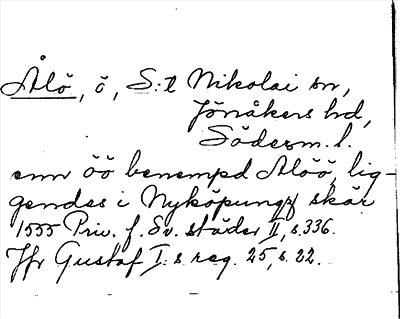 Ålö, ö, S:t Nikolai sn,
Jönåkers hd,
Söderm. l.
enn öö benempd Alöö, lig-
gendes i Nyköpungz skär
1555 Priv. f. Sv. städer II, s. 336.
Jfr Gustaf I:s reg. 25, s. 22.